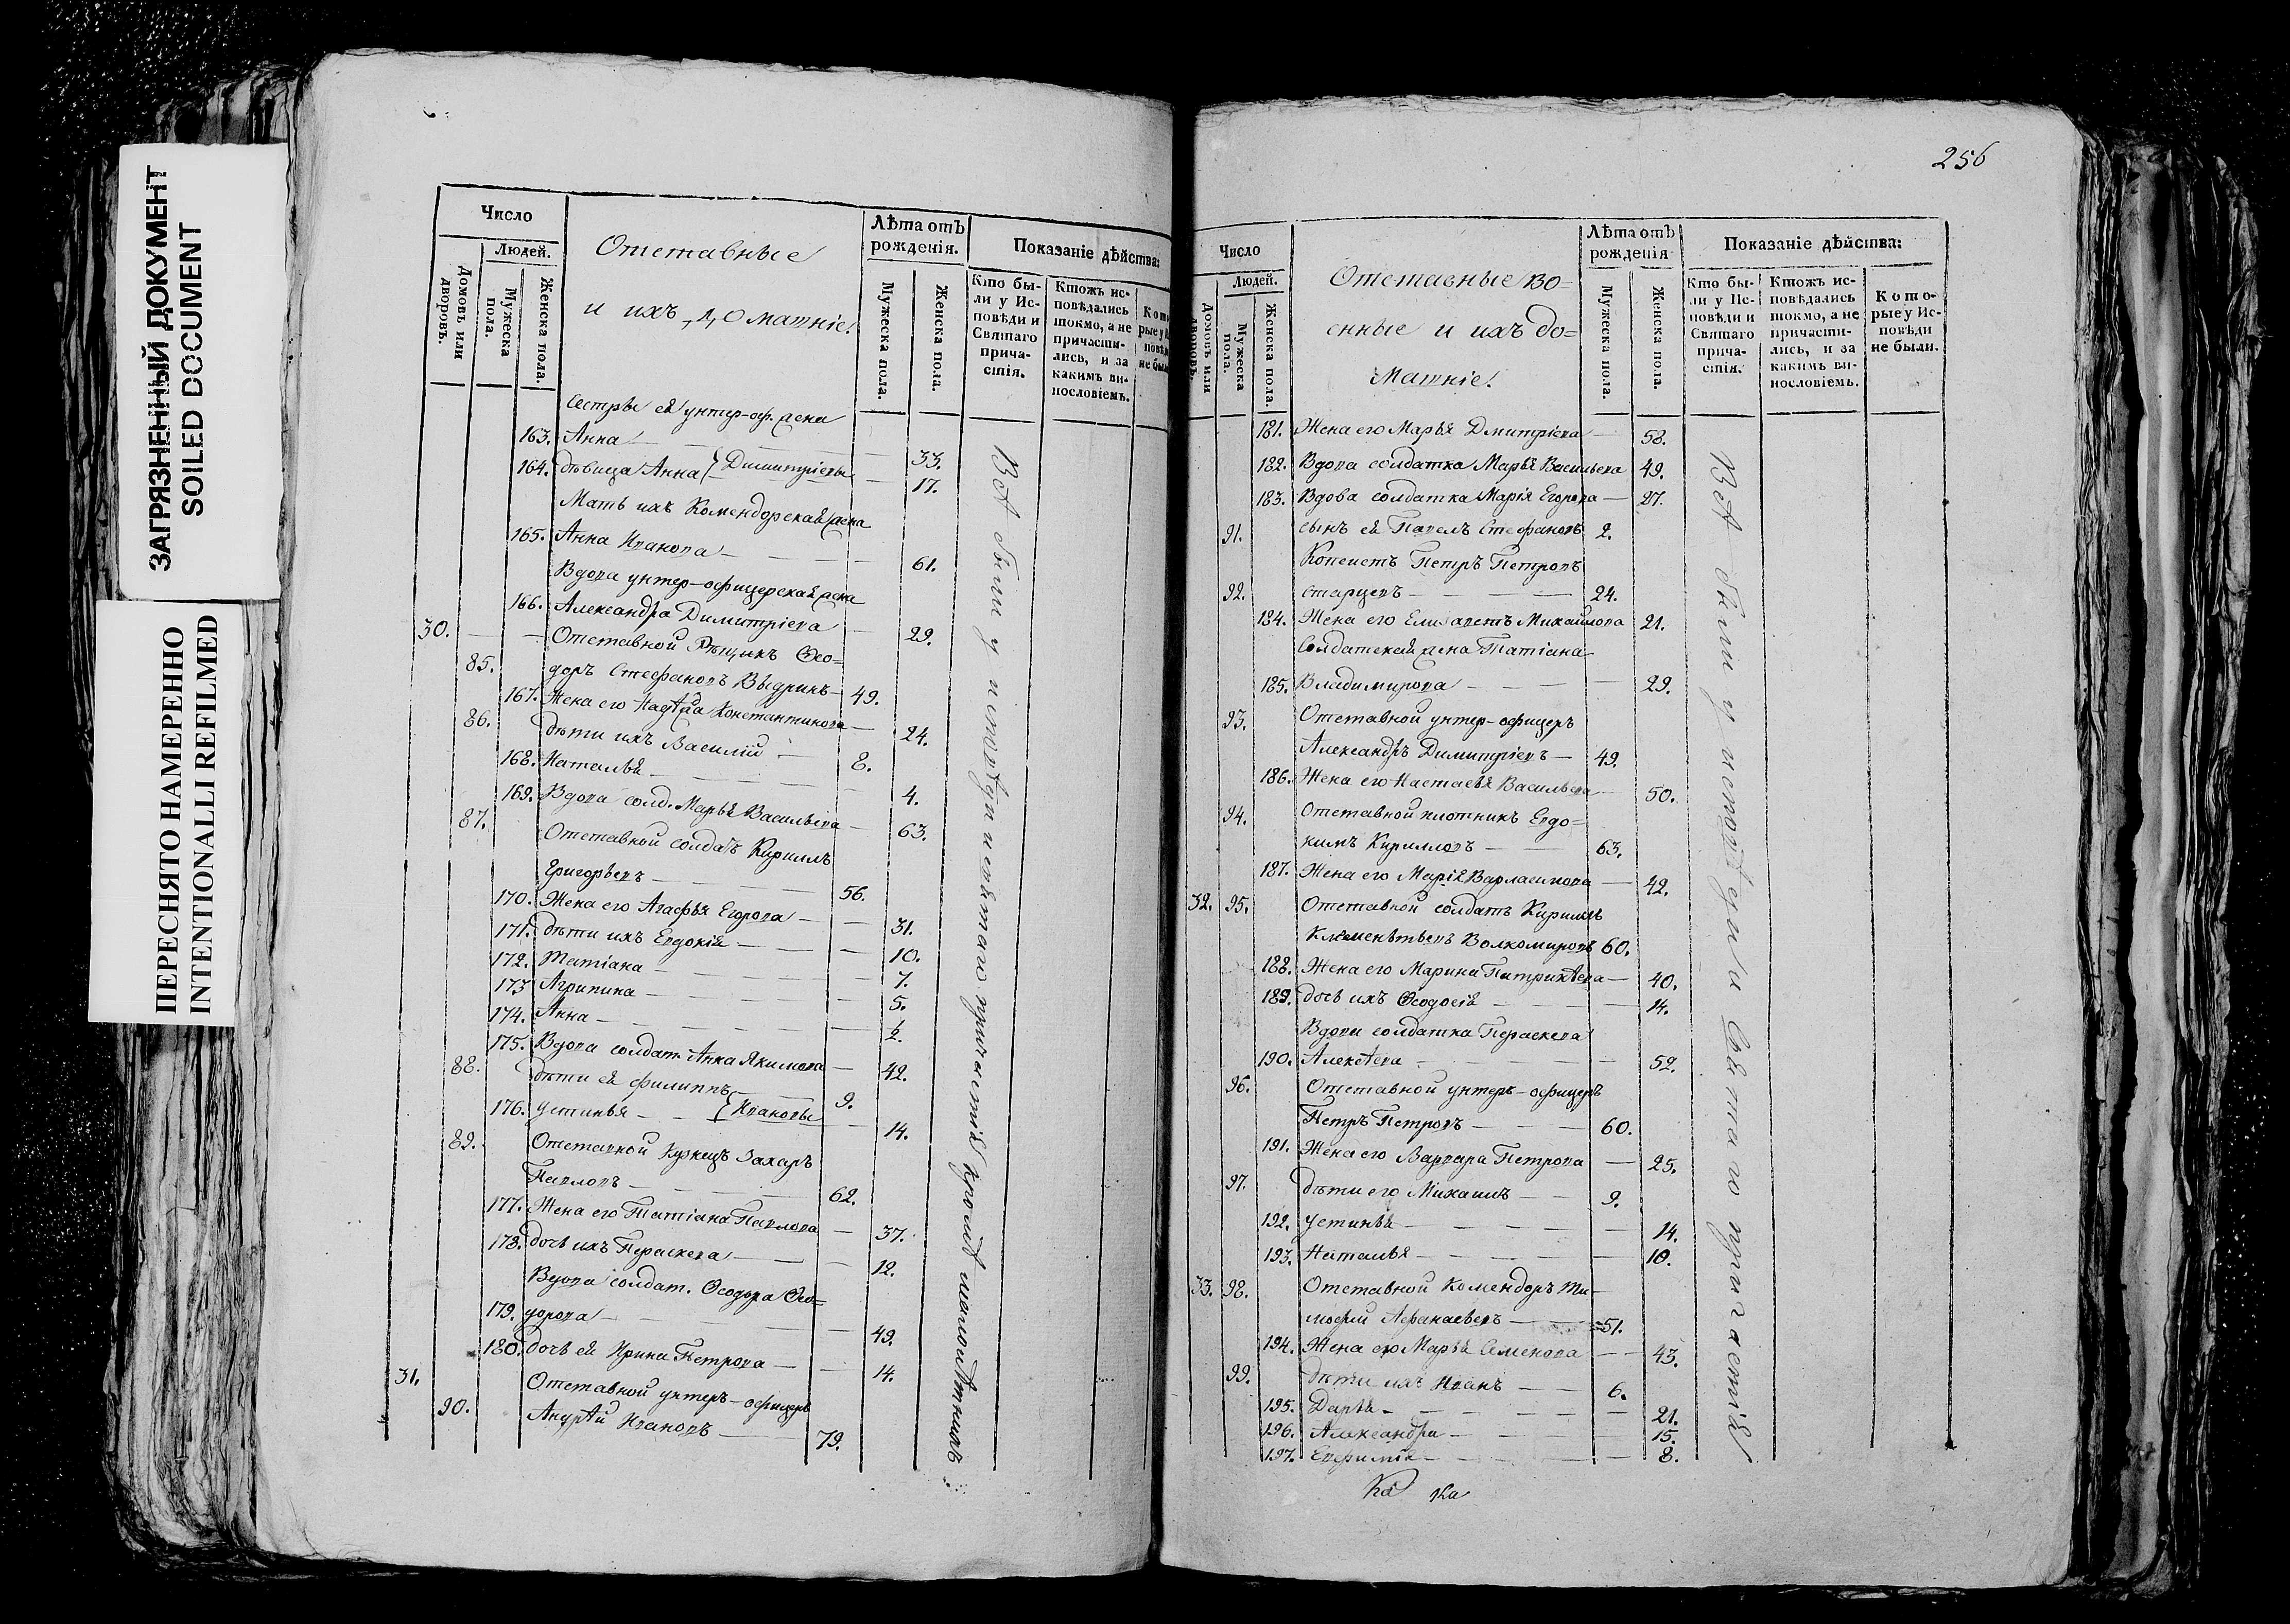 ЗАГРЯЗНЕННЫЙ ДОКУМЕНТ
SOILED DOCUMENT
ПЕРЕСНЯТО НАМЕРЕННО
INTENTIONALLI REFILMED
Число
Людей.
Домовъ или дворовъ.
Мужеска пола.
Женска пола.
Отставные
и ихъ домашніе.
Лѣта отъ рожденія.
Мужеска пола.
Женска пола.
Показаніе дѣйства:
Кто были у Исповѣди и Святаго причастія.
Ктожъ исповѣдались токмо, а не причастились, и за какимъ винословіемъ.
Сестры ея унтер-оф. жена
163. Анна — 33.
164. дѣвица Анна } Димитріевы — 17.
Мать ихъ Комендорская жена
165. Анна Иванова — 61.
Вдова унтер-офицерская жена
166. Александра Димитріева — 29.
30. — Отставной Рѣщикъ Ѳео=
85. доръ Стефановъ Выдринъ — 49.
167. Жена его Надѣжда Константинова — 24.
86. дѣти ихъ Василій — 8.
168. Наталья — 4.
169. Вдова солд. Марья Васильева — 63.
87. Отставной солдатъ Кириллъ
Григорьевъ — 56.
170. Жена его Агафья Егорова — 31.
171. дѣти ихъ Евдокія — 10.
172. Татіана — 7.
173 Агрипина — 5.
174. Анна —
175. Вдова солдат. Анна Якимова — 42.
88. дѣти ея Филиппъ — 9.
176. Устинья — } Ивановы — 14.
89. Отставной Кузнецъ Захаръ
Павловъ — 62.
177. Жена его Татіана Павлова — 37.
178. дочь ихъ Параскева — 12.
Вдова солдат. Ѳеодора Ѳео=
179. дорова — 49.
180. дочь ея Ирина Петрова — 14.
31. Отставной унтеръ-офицеръ
90. Андрѣй Ивановъ — 79.
Всѣ были у исповѣди и святаго причастія кромѣ малолѣтнихъ
256
Число
Людей.
Домовъ или дворовъ.
Мужеска пола.
Женска пола.
Отставные во=
енные и ихъ до=
машніе.
Лѣта отъ рожденія
Мужеска пола.
Женска пола.
Показаніе дѣйства:
Кто были у Исповѣди и Святаго причастія.
Ктожъ исповѣдались токмо, а не причастились, и за какимъ винословіемъ.
Которые у Исповѣди не были.
181. Жена его Марья Дмитріева — 58.
182. Вдова солдатка Марья Васильева 49.
183. Вдова солдатка Марія Егорова — 27.
91. сынъ ея Павелъ Стефановъ 2.
Копеистъ Петръ Петровъ
92. Старцевъ — 24.
184. Жена его Елисаветъ Михайлова 21.
Солдатская жена Татіана
185. Владимирова — 29.
93. Отставной унтер-офицеръ
Александръ Димитріевъ — 49.
186. Жена его Настасья Васильева 50.
94. Отставной плотникъ Евдо=
кимъ Кирилловъ — 63.
187. Жена его Марія Варласимова — 42.
32. 95. Отставной солдатъ Кириллъ
Климентьевъ Волкомировъ 60.
188. Жена его Марина Патрикѣева — 40.
189. дочь ихъ Ѳеодосія — 14.
Вдова солдатка Параскева
190. Алексѣева — 52.
96. Отставной унтеръ-офицеръ
Петръ Петровъ — 60.
191. Жена его Варвара Петрова — 25.
97. дѣти его Михаилъ — 9.
192. Устинья — 14.
193. Наталья — 10.
33. 98. Отставной Комендоръ Ти-
мофей Афанасьевъ — 51.
194. Жена его Марья Семенова — 43.
99. дѣти ихъ Иванъ — 6.
195. Дарья — 21.
196. Александра — 15.
197. Евфимія — 8.
Всѣ были у исповѣди и святаго причастія